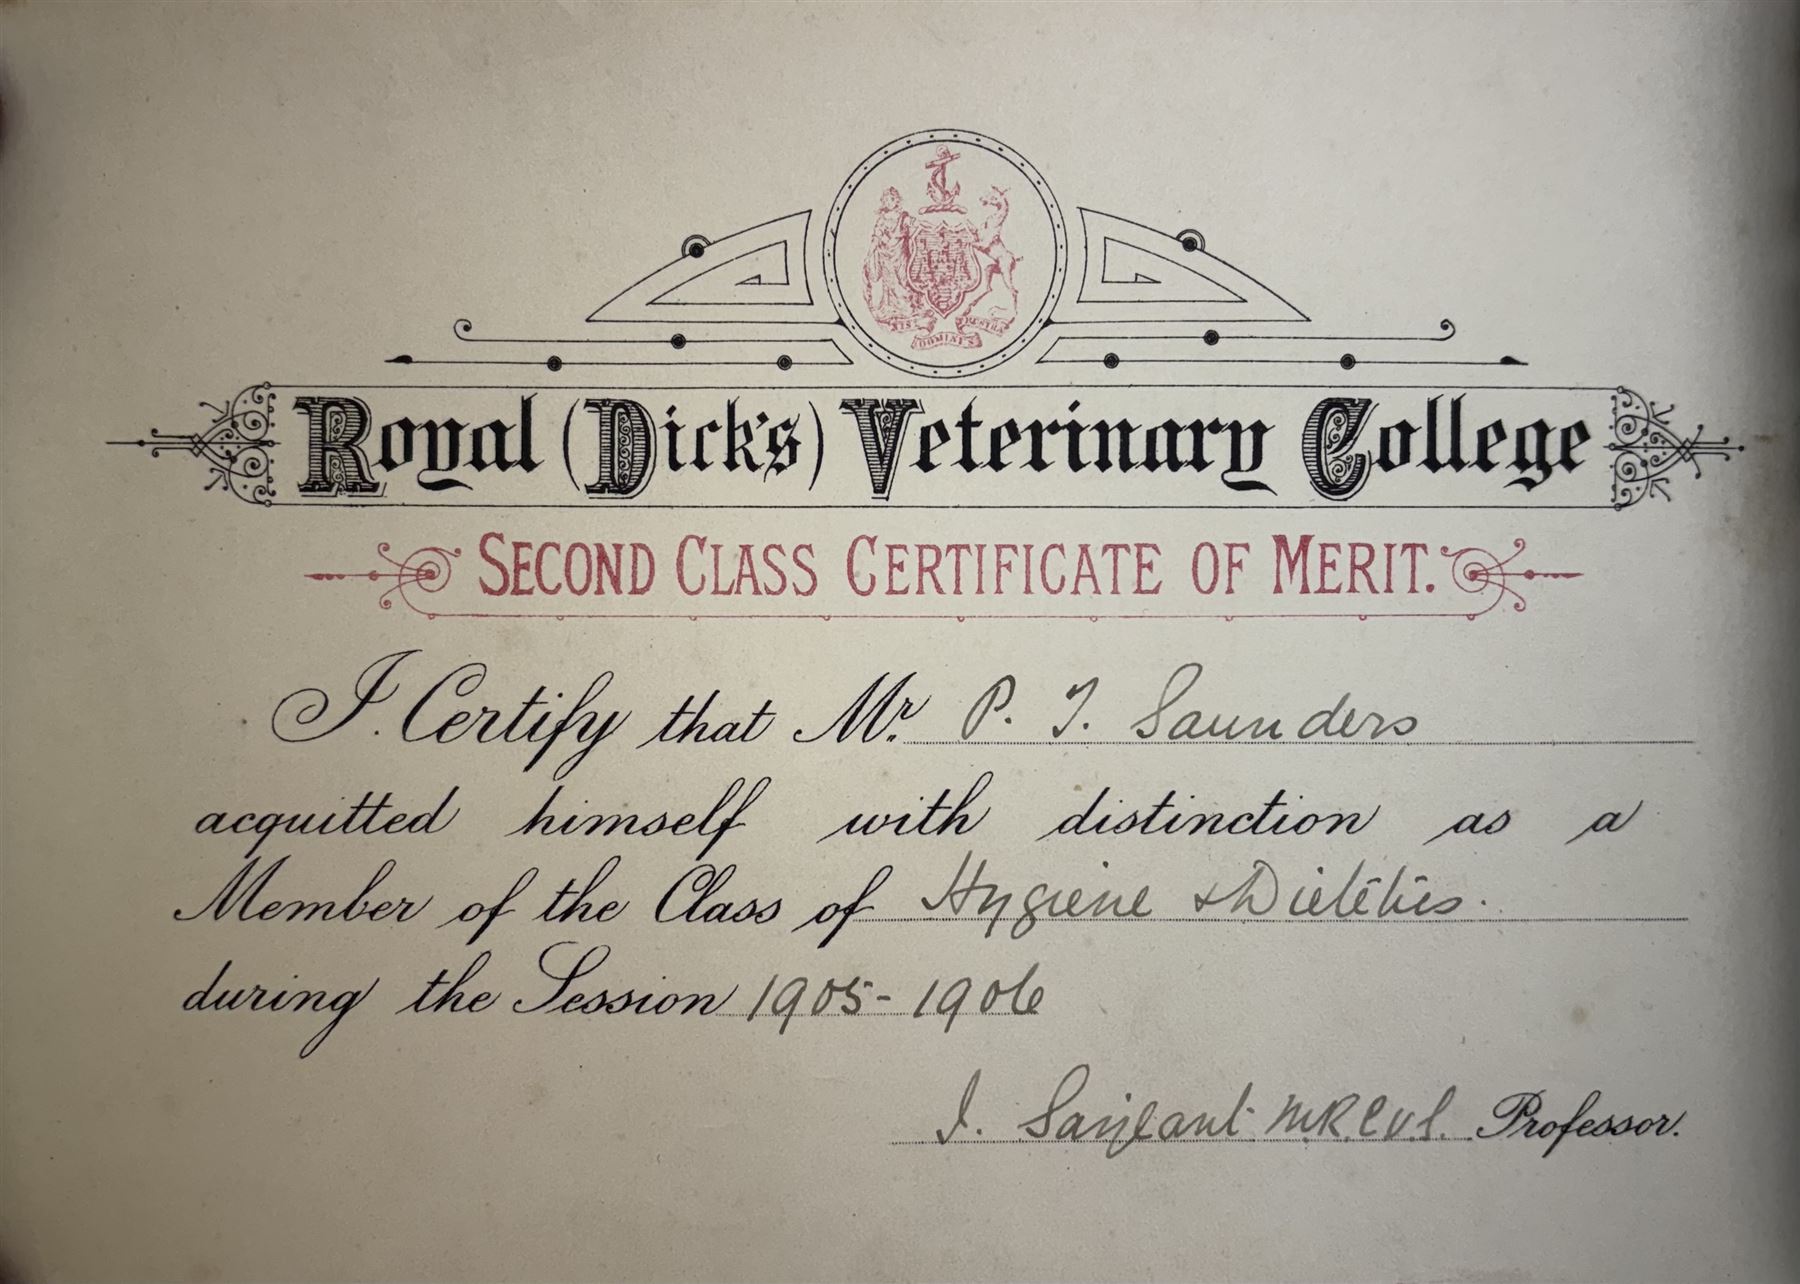 NISI DOMINUS FRUSTRA
Royal (Dick's) Veterinary College
SECOND CLASS CERTIFICATE OF MERIT.
I Certify that Mr. P. T. Saunders
acquitted himself with distinction as a
Member of the Class of Hygiene & Dietetics.
during the Session 1905-1906
M.R.C.V.S. Professor.